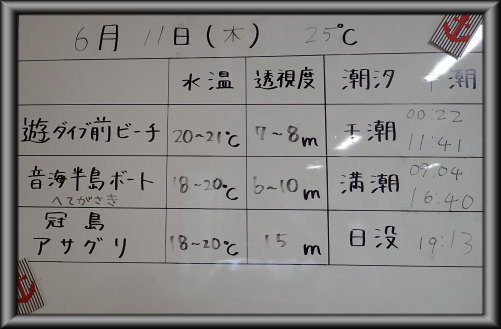 6月 11日(木) 25℃
水温 透視度 潮汐 干潮
遊ダイブ前ビーチ 20~21℃ 7~8m 干潮 00:22 11:41
音海半島ボート 18~20℃ 6~10m 満潮 09:04 16:40
へてがさき
冠島
アサグリ 18~20℃ 15m 日没 19:13